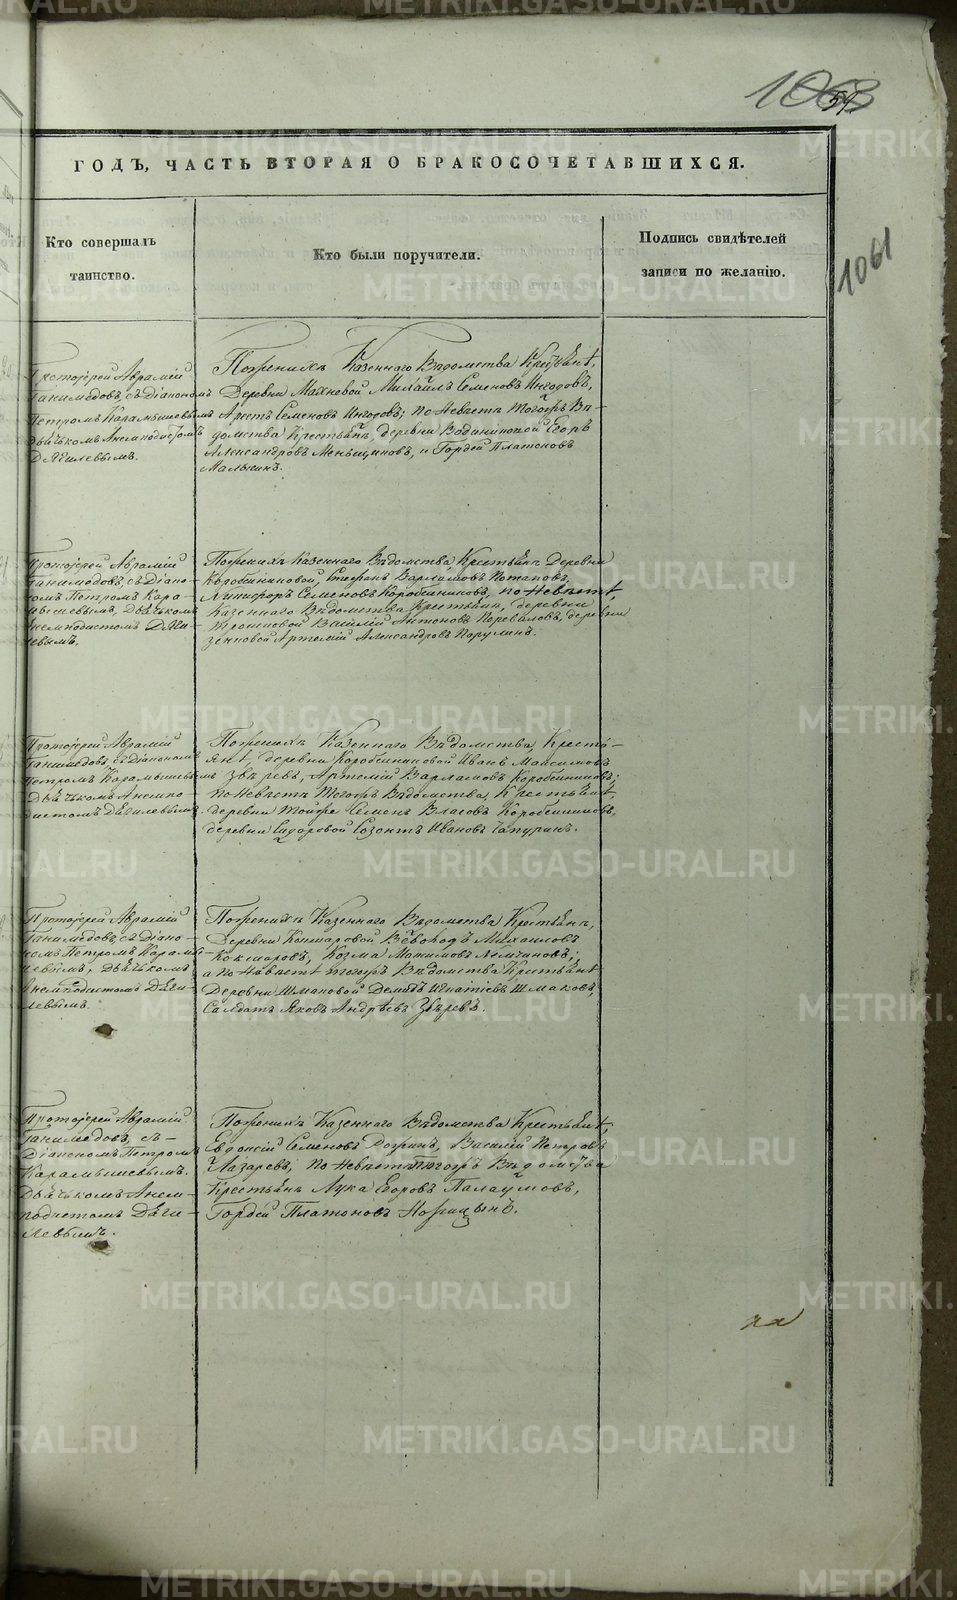 1063
51
ГОДЪ, ЧАСТЬ ВТОРАЯ О БРАКОСОЧЕТАВШИХСЯ.
Кто совершалъ
таинство.
Кто были поручители.
Подпись свидѣтелей
записи по желанію.
1061
Протоіерей Аврамій
Ганимедовъ, съ Діакономъ
Петромъ Карамышевымъ
Дьячькомъ Анемподистомъ
Дягилевымъ.
Поженихѣ Казеннаго Вѣдомства Крестьянѣ,
Деревни Махневой Михайлъ Семеновъ
Семеновъ по Невѣстѣ Тогожъ Вѣ-
домства Крестьянѣ, деревни Егоръ
Александровъ Меньщиковъ, и Гордей Платоновъ
Протоіерей Аврамій
Ганимедовъ, съ Діако-
номъ Петромъ Кара-
мышевымъ, Дьячькомъ
Анемподистомъ Дяги-
левымъ.
Поженихѣ Казеннаго Вѣдомства Крестьянѣ Деревни
Коробейниковой, Стефанъ Варламовъ Потаповъ,
Семеновъ Коробейниковъ, по Невѣстѣ,
Казеннаго Вѣдомства Крестьянѣ, деревни
Василій Антоновъ Переваловъ, деревни
Артемій Александровъ
Протоіерей Аврамій
Ганимедовъ, съ Діакономъ
Петромъ Карамышевымъ
Дьячькомъ Анемпо-
дистомъ Дягилевымъ.
Поженихѣ Казеннаго Вѣдомства, Кресть-
янѣ, деревни Коробейниковой Иванъ Максимовъ
Звѣревъ, Артемій Варламовъ Коробейниковъ;
по Невѣстѣ Тогожъ Вѣдомства, Крестьянѣ,
деревни Тойже Семенъ Власовъ Коробейниковъ,
деревни Сидоровой Созонтъ Ивановъ Чапуринъ.
Протоіерей Аврамій
Ганимедовъ, съ Діако-
номъ Петромъ Карамы-
шевымъ, Дьячькомъ
Анемподистомъ Дяги-
левымъ.
Поженихѣ Казеннаго Вѣдомства Крестьянѣ,
Деревни Кокшаровой Михаиловъ
Кокшаровъ, Козма Немчиновъ;
а по Невѣстѣ тогожъ Вѣдомства Крестьянѣ
Деревни Шмаковой Игнатіевъ Шмаковъ,
Салдатъ Яковъ Андрѣевъ Звѣревъ.
Протоіерей Аврамій
Ганимедовъ, съ
Діакономъ Петромъ
Карамышевымъ.
Дьячькомъ Анем-
подистомъ Дяги-
левымъ.
Поженихѣ Казеннаго Вѣдомства Крестьянѣ,
Семеновъ Василій Петровъ
Лазаревъ; по Невѣстѣ тогожъ Вѣдомства
Крестьянъ Лука Егоровъ
Гордей Платоновъ
METRIKI.GASO-URAL.RU